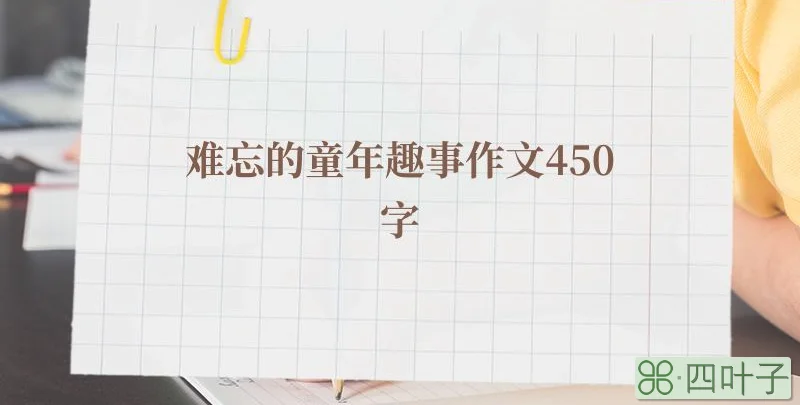 难忘的童年趣事作文450
字
四叶子